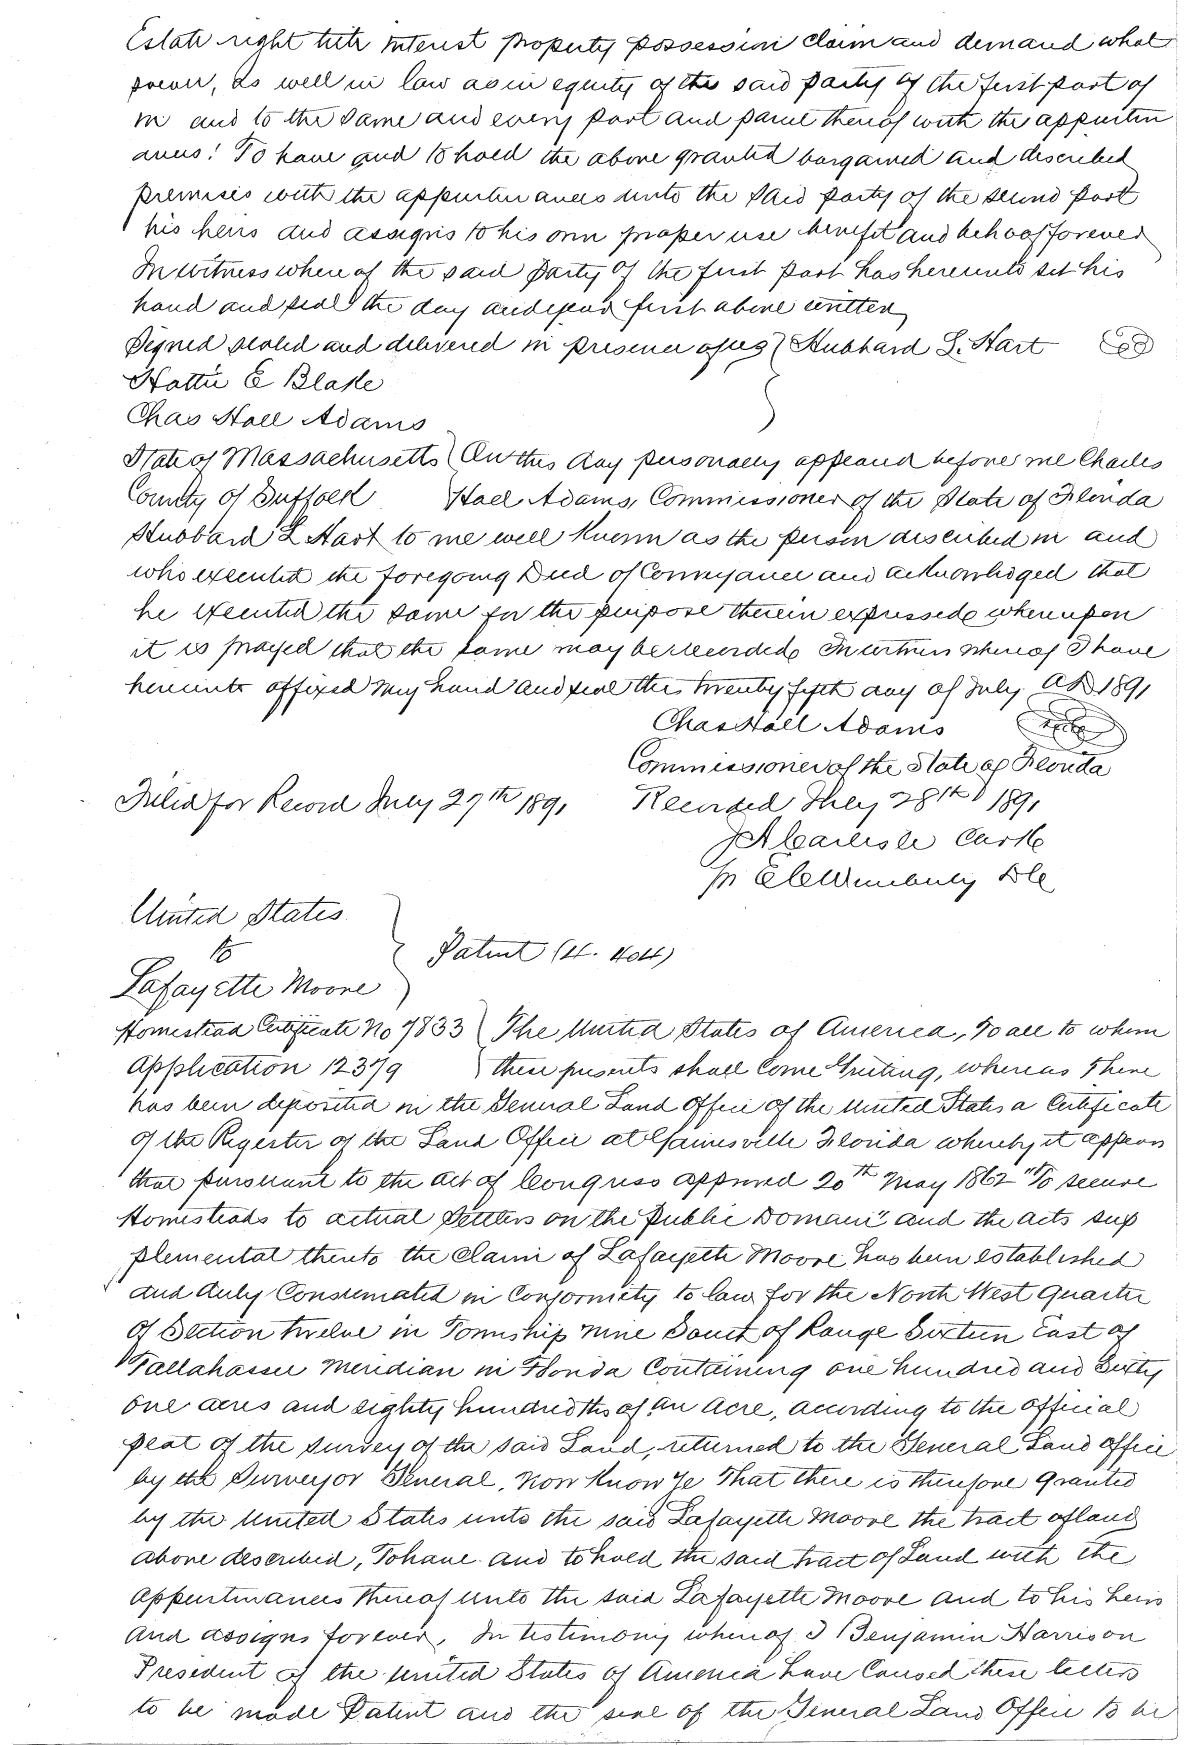 Estate right title interest property possession claim and demand what
soever, as well in law as in equity of the said party of the first part of
in and to the same and every part and parcel thereof with the appurten
ances: To have and to hold the above granted bargained and described
premises with the appurtenances unto the said party of the second part
his heirs and assigns to his own proper use benefit and behoof forever
In witness where of the said party of the first part has hereunto set his
hand and seal the day and year first above written,
Signed sealed and delivered in presence of us Hubbard L. Hart
Hattie E Blake
Chas Hall Adams
State of Massachusetts On this day personally appeared before me Charles
County of Suffolk Hall Adams, Commissioner of the State of Florida
Hubbard L Hart to me well known as the person described in and
who executed the foregoing Deed of Conveyance and acknowledged that
he executed the same for the purpose therein expressed whereupon
it is prayed that the same may be recorded In witness whereof I have
hereunto affixed my hand and seal this twenty fifth day of July AD 1891
Chas Hall Adams
Commissioner of the State of Florida
Filed for Record July 27th 1891 Recorded July 28th 1891
J A Carlisle Clerk
pr
United States
to
Lafayette Moore
Patent (4. 404)
Homestead Certificate No 7833 The United States of America, To all to whom
Application 12379 these presents shall Come Greeting, whereas There
has been deposited in the General Land Office of the United States a Certificate
of the Register of the Land Office at Gainesville Florida whereby it appears
that pursuant to the act of Congress approved 20th May 1862 "To secure
Homesteads to actual Settlers on the Public Domain" and the acts sup
plemental thereto the Claim of Lafayette Moore has been established
and duly Consumated in Conformity to law for the North West quarter
of Section twelve in Township nine South of Range Sixteen East of
Tallahassee Meridian in Florida Containing one hundred and Sixty
one acres and eighty hundredths of an Acre, according to the official
plat of the survey of the said Land, returned to the General Land office
by the Surveyor General, Now Know Ye That there is therefore granted
by the United States unto the said Lafayette Moore the tract of land
above described, To have and to hold the said tract of Land with the
appurtenances thereof unto the said Lafayette Moore and to his heirs
and assigns forever, In testimony whereof I Benjamin Harrison
President of the United States of America have Caused these letters
to be made Patent and the seal of the General Land Office to be